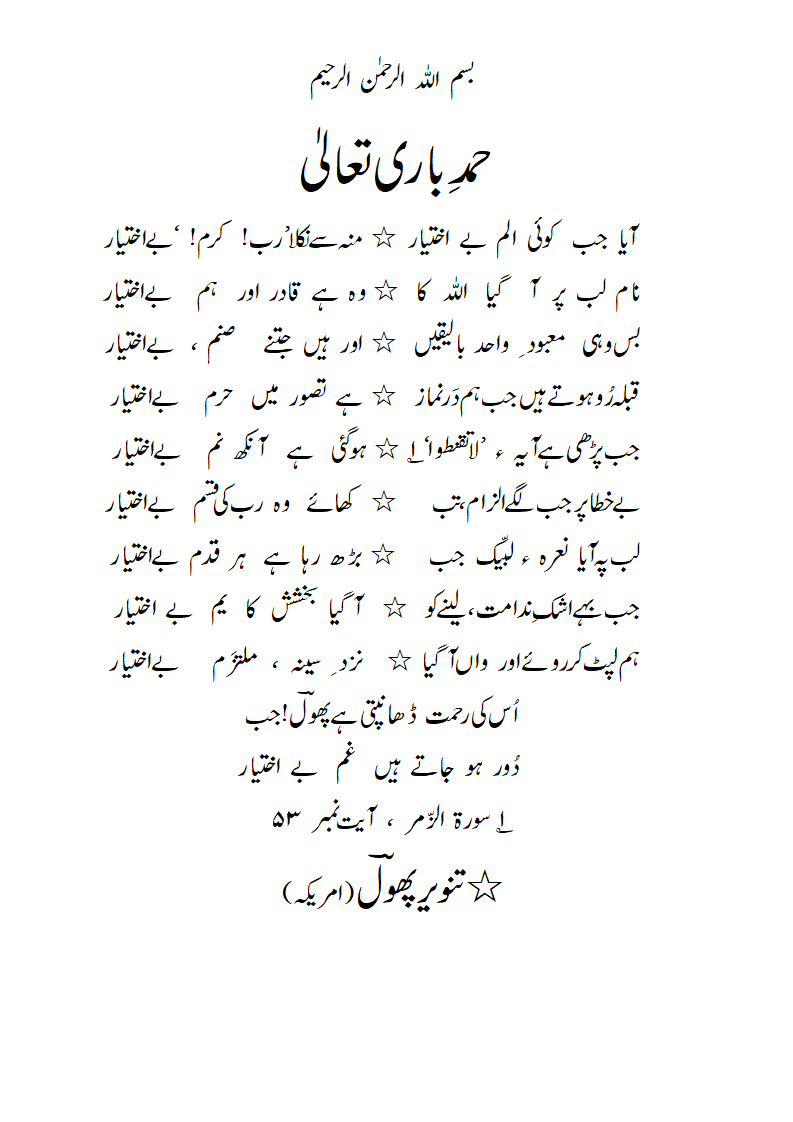 بسم اللہ الرحمٰن الرحیم
حمدِ باری تعالیٰ
آیا جب کوئی الم بے اختیار ☆ منہ سے نکلا’رب! کرم! ‘بے اختیار
نام لب پر آ گیا اللہ کا ☆ وہ ہے قادر اور ہم بے اختیار
بس وہی معبودِ واحد بالیقیں ☆ اور ہیں جتنے صنم ، بے اختیار
قبلہ رُو ہوتے ہیں جب ہم دَر نماز ☆ ہے تصور میں حرم بے اختیار
جب پڑھی ہے آیہ ء ’لا تقنطوا‘ ؂۱ ☆ ہوگئی ہے آنکھ نم بے اختیار
بے خطا پر جب لگے الزام، تب ☆ کھائے وہ رب کی قسم بے اختیار
لب پہ آیا نعرہ ء لبیّک جب ☆ بڑھ رہا ہے ہر قدم بے اختیار
جب بہے اشکِ ندامت، لینے کو ☆ آ گیا بخشش کا یم بے اختیار
ہم لپٹ کر روئے اور واں آ گیا ☆ نزدِ سینہ ، ملتزَم بے اختیار
اُس کی رحمت ڈھانپتی ہے پھولؔ! جب
دُور ہو جاتے ہیں غم بے اختیار
؂۱ سورۃ الزّمر ، آیت نمبر ۵۳
☆ تنویر پھولؔ (امریکہ)